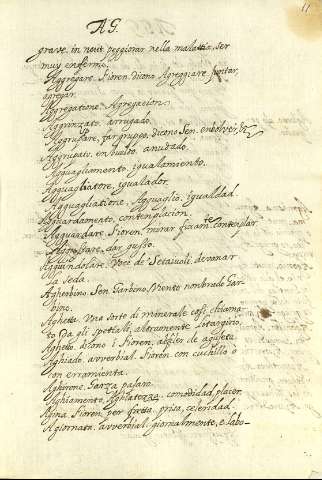 11
AG.
grave, in neut peggiorar nella malattia, Ser
muy enfermo.
Aggregare. Fioren. dicono Agreggiare. juntar,
agregar.
Aggregatione. Agregacion.
Aggrinzato. arrugado.
Aggruppare, far gruppo, dicono Sen. enbolver,
Aggrupato. enbuelto, anudado.
Agguagliamento, igualamiento.
Agguagliatore, igualador.
Agguagliatione, Agguaglio. igualdad.
Agguardamento, contemplacion.
Agguardare. Fioren. mirar fixamte. contemplar
dar gusto.
Agguindolare. Voce de Setaiuoli. devanar
la seda.
Agherbino. Sen. Garbino, Viento nonbrado Gar-
bino.
Aghetta. Una sorte di minerale cosi chiama
to da gli spetiali, altramente litargirio.
Aghetto. dicono i Fioren.
Aghiado, avverbial. Fioren. con cuchillo o
con erramienta.
Aghirone. Garza pajaro.
Agiamento, comodidad, placer.
Agina. Fioren. per fretta. prisa, celeridad.
Agiornata. avverbial. giornalmente, e labo-